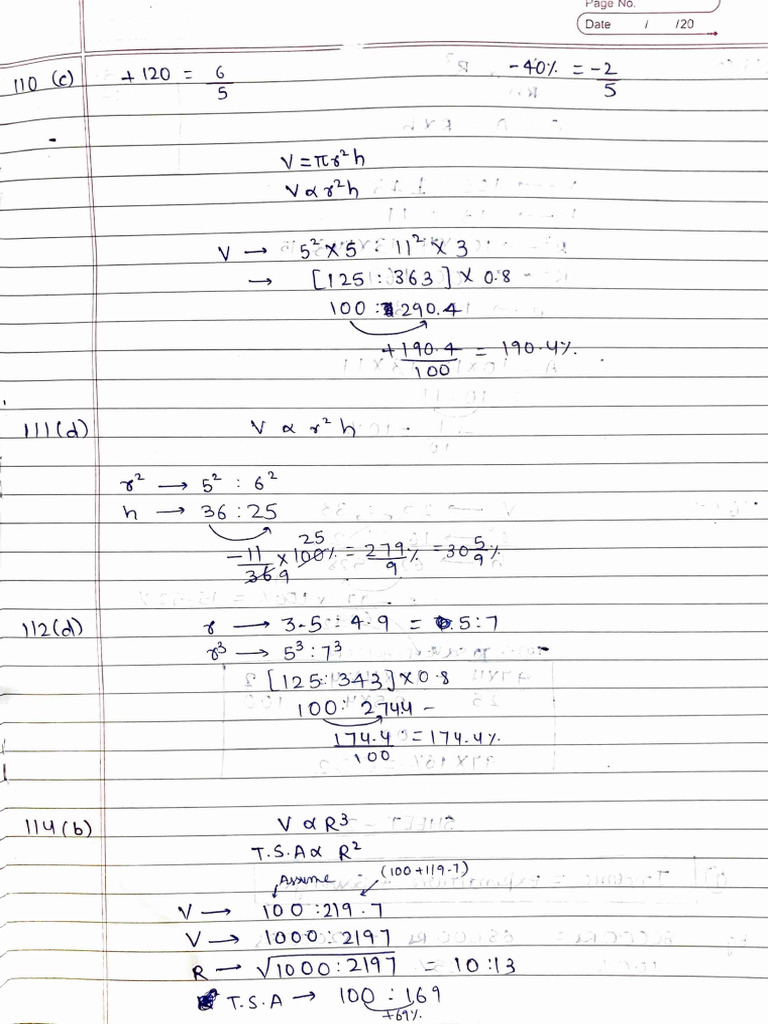 Page No.
Date / /20
110 (c) +120 = 6/5 -40% = -2/5
V = πr²h
V ∝ r²h
V → 5² × 5 : 11² × 3
→ [125 : 363] × 0.8
100 : 290.4
+190.4/100 = 190.4%.
111(d) V ∝ r² h
r² → 5² : 6²
h → 36 : 25
-11/36 × 100% = 279/9 % = 30 5/9 %
25
9
112(d) r → 3.5 : 4.9 = 5 : 7
r³ → 5³ : 7³
[125 : 343] × 0.8
100 : 274.4
174.4/100 = 174.4%
114(b) V ∝ R³
T.S.A ∝ R²
Assume (100+119.7)
V → 100 : 219.7
V → 1000 : 2197
R → √1000 : 2197 = 10 : 13
T.S.A → 100 : 169
+69%